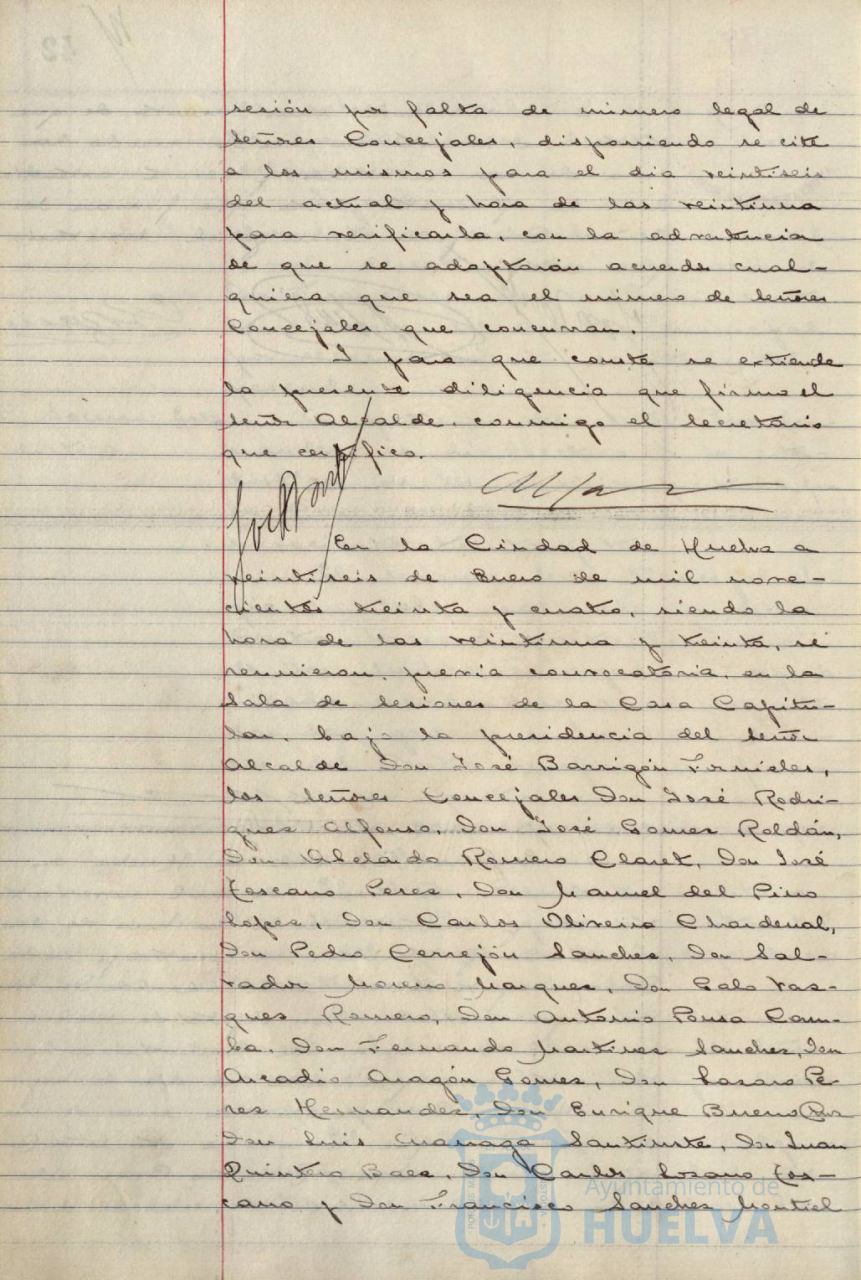 sesión por falta de número legal de
señores Concejales, disponiendo se cite
a los mismos para el dia veintiseis
del actual y hora de las veintiuna
para verificarla, con la advertencia
de que se adoptarán acuerdos cual-
quiera que sea el número de señores
Concejales que concurran.
Y para que conste se extiende
la presente diligencia que firma el
señor Alcalde, conmigo el Secretario
que certifico.
En la Ciudad de Huelva a
veintiseis de Enero de mil nove-
cientos treinta y cuatro, siendo la
hora de las veintiuna y treinta, se
reunieron, previa convocatoria, en la
Sala de sesiones de la Casa Capitu-
lar, bajo la presidencia del señor
Alcalde Don José Barrigón Fornieles,
los señores Concejales Don José Rodri-
gues Alfonso, Don José Gomes Roldán,
Don Abelardo Romero Claret, Don José
Toscano Peres, Don Manuel del Pino
Lopes, Don Carlos Oliveira Chardenal,
Don Pedro Cerrejón Sanches, Don Sal-
vador Moreno Marques, Don Galo Vas-
ques Romero, Don Antonio Ponsa Cam-
ba, Don Fernando Martines Sanches, Don
Arcadio Aragón Gomes, Don Lasaro Pe-
res Hernandes, Don Enrique Bueno Cruz
Don Luis Santirste, Don Juan
Quintero Baes, Don Carlos Losano Tos-
cano y Don Francisco Sanches Montiel
Ayuntamiento de
HUELVA